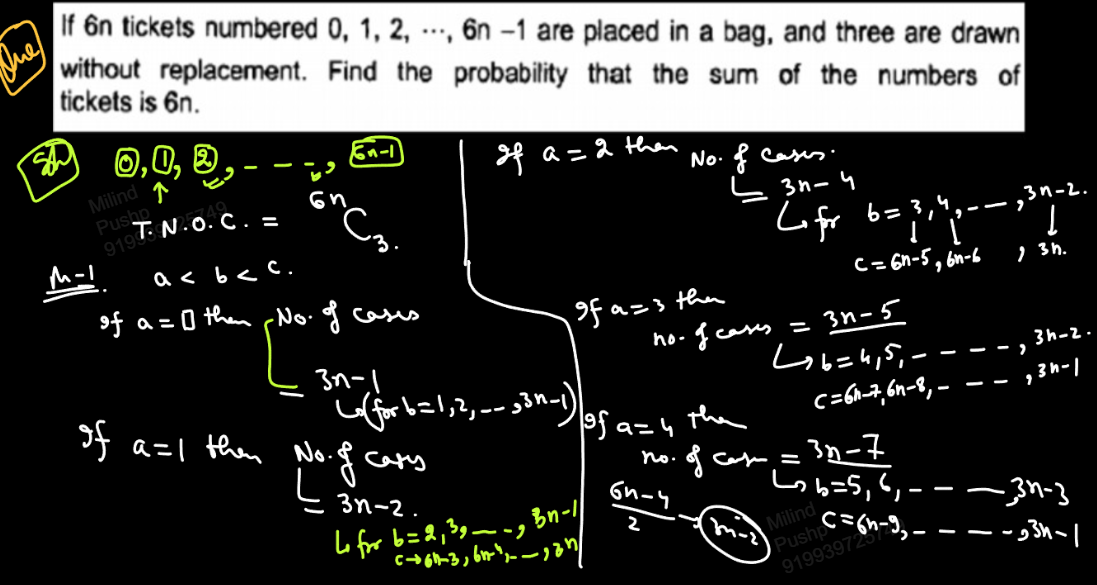 Que
If 6n tickets numbered 0, 1, 2, ···, 6n –1 are placed in a bag, and three are drawn
without replacement. Find the probability that the sum of the numbers of
tickets is 6n.
Soln
0, 1, 2, - - - -, 6n-1
T.N.O.C. = 6nC3.
M-1. a < b < c.
If a = 0 then No. of cases
3n-1
(for b=1,2,--,3n-1)
If a=1 then No. of cases
= 3n-2.
for b=2,3,---, 3n-1
c→6n-3, 6n-4,---, 3n
If a=2 then No. of cases.
= 3n-4
for b=3,4,---,3n-2.
c=6n-5, 6n-6 , 3n.
If a=3 then
no. of cases = 3n-5
b=4,5,- - - - -, 3n-2.
c=6n-7,6n-8,- - - -, 3n-1
If a=4 then
no. of case = 3n-7
b=5,6,- - - 3n-3
c=6n-9,- - - - -, 3n-1
6n-4
2
3n-2
Milind
Pushp
919939725749
Milind
Pushp